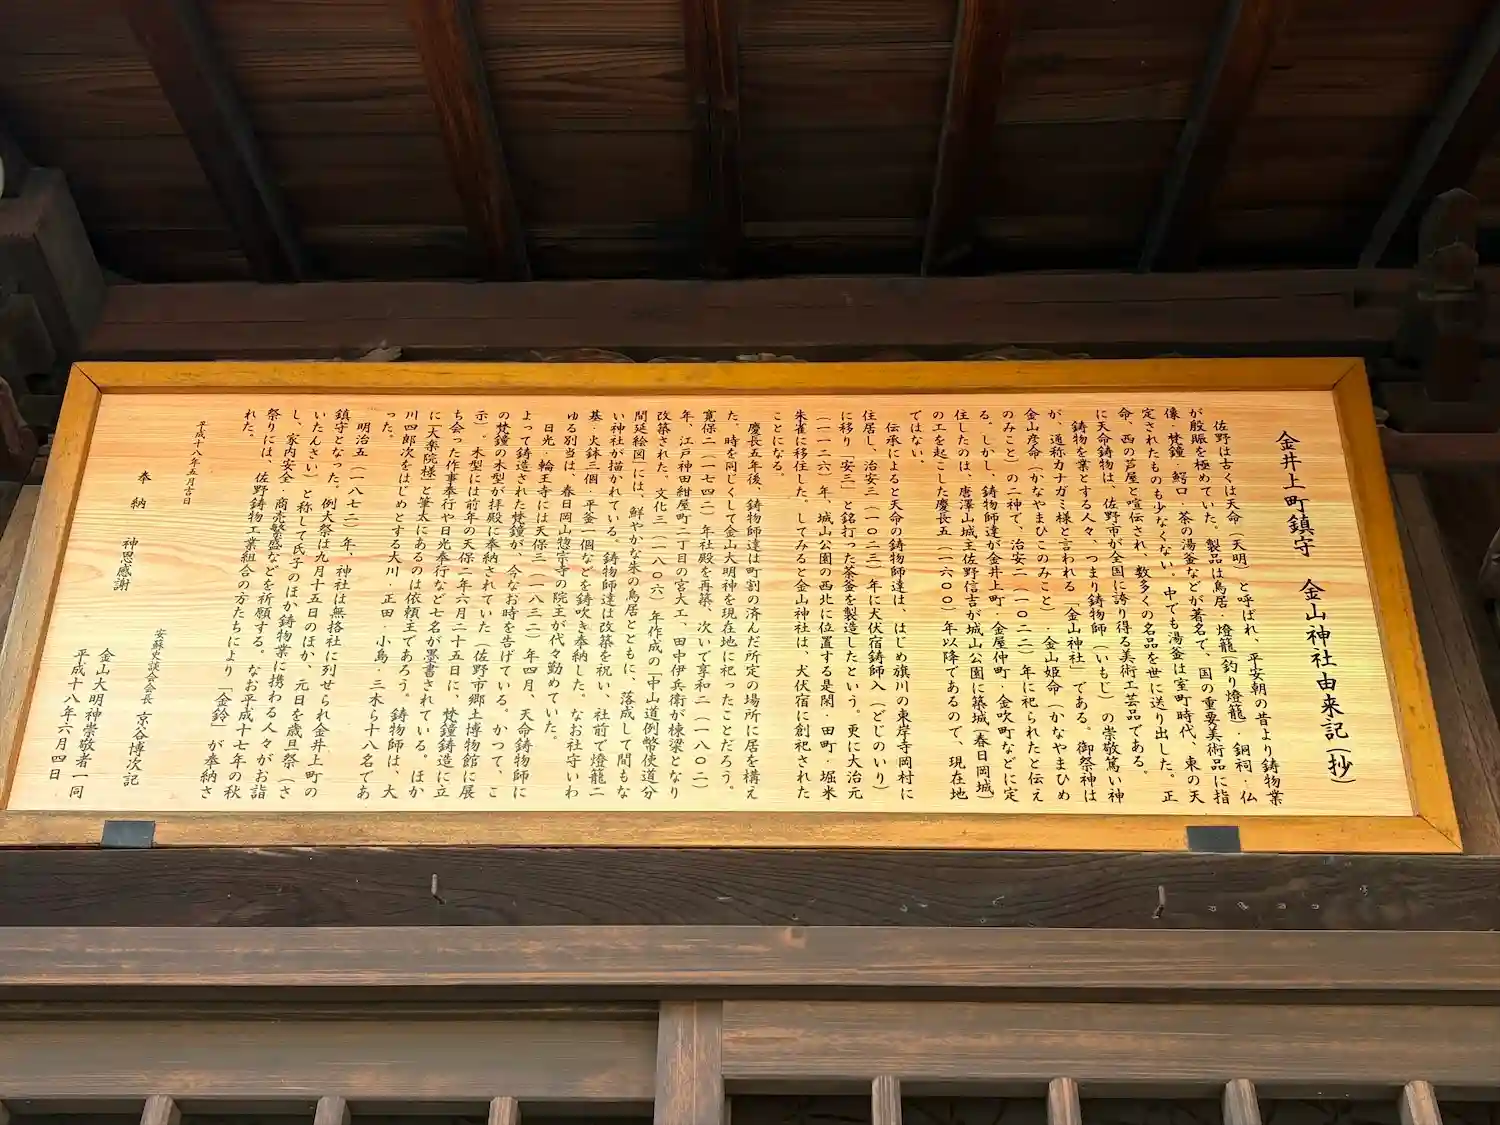 金井上町鎮守　金山神社由来記(抄)
佐野は古くは天命(天明)と呼ばれ、平安朝の昔より鋳物業
が殷賑を極めていた。製品は鳥居・燈籠・釣り燈籠・銅祠・仏
像・梵鐘・鰐口・茶の湯釜などが著名で、国の重要美術品に指
定されたものも少なくない。中でも湯釜は室町時代、東の天
命、西の芦屋と喧伝され、数多くの名品を世に送り出した。正
に天命鋳物は、佐野市が全国に誇り得る美術工芸品である。
鋳物を業とする人々、つまり鋳物師(いもじ)の崇敬篤い神
が、通称カナガミ様と言われる「金山神社」である。御祭神は
金山彦命(かなやまひこのみこと)・金山姫命(かなやまひめ
のみこと)の二神で、治安二(一〇二二)年に祀られたと伝え
る。しかし、鋳物師達が金井上町・金屋仲町・金吹町などに定
住したのは、唐澤山城主佐野信吉が城山公園に築城(春日岡城)
の工を起こした慶長五(一六〇〇)年以降であるので、現在地
ではない。
伝承によると天命の鋳物師達は、はじめ旗川の東岸寺岡村に
住居し、治安三(一〇二三)年に犬伏宿鋳師入(どじのいり)
に移り「安三」と銘打った茶釜を製造したという。更に大治元
(一一二六)年、城山公園の西北に位置する是閑・田町・堀米
朱雀に移住した。してみると金山神社は、犬伏宿に創祀された
ことになる。
慶長五年後、鋳物師達は町割の済んだ所定の場所に居を構え
た。時を同じくして金山大明神を現在地に祀ったことだろう。
寛保二(一七四二)年社殿を再築、次いで享和二(一八〇二)
年、江戸神田紺屋町二丁目の宮大工、田中伊兵衛が棟梁となり
改築された。文化三(一八〇六)年作成の「中山道例幣使道分
間延絵図」には、鮮やかな朱の鳥居とともに、落成して間もな
い神社が描かれている。鋳物師達は改築を祝い、社前で燈籠二
基・火鉢三個・平釜一個などを鋳吹き奉納した。なお社守いわ
ゆる別当は、春日岡山惣宗寺の院主が代々勤めていた。
日光・輪王寺には天保三(一八三二)年四月、天命鋳物師に
よって鋳造された梵鐘が、今なお時を告げている。かつて、こ
の梵鐘の木型が拝殿に奉納されていた(佐野市郷土博物館に展
示)。木型には前年の天保二年六月二十五日に、梵鐘鋳造に立
ち会った作事奉行や日光奉行など七名が墨書されている。ほか
に「大楽院様」と筆太にあるのは依頼主であろう。鋳物師は、大
川四郎次をはじめとする大川・正田・小島・三木ら十八名であ
った。
明治五(一八七二)年、神社は無格社に列せられ金井上町の
鎮守となった。例大祭は九月十五日のほか、元日を歳旦祭(さ
いたんさい)と称して氏子のほか鋳物業に携わる人々がお詣
し、家内安全・商売繁盛などを祈願する。なお平成十七年の秋
祭りには、佐野鋳物工業組合の方たちにより「金鈴」が奉納さ
れた。
平成十八年五月吉日
安蘇史談会会長　京谷博次記
奉納　神恩感謝
金山大明神崇敬者一同
平成十八年六月四日